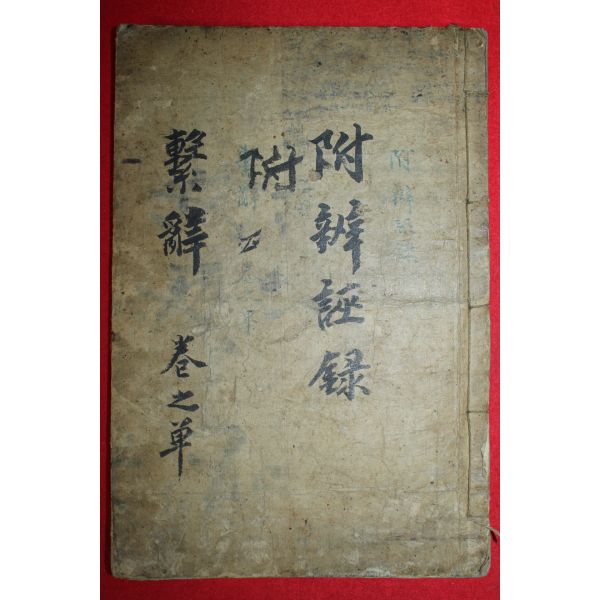 附辨誣錄
附
繫辭 卷之单